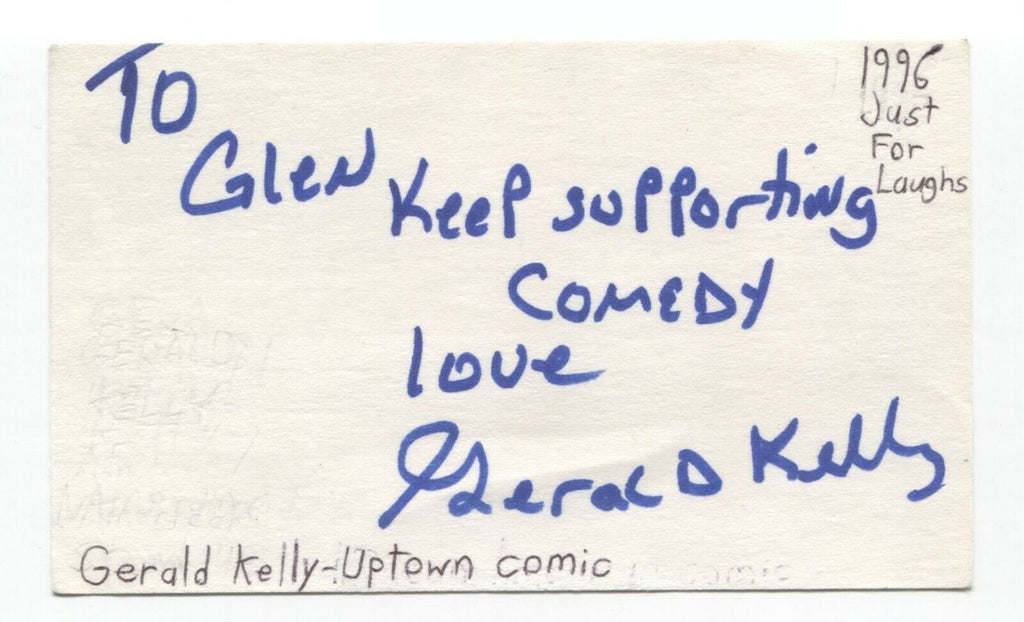 TO
Glen Keep supporting
COMEDY
love
Gerald Kelly
1996
Just
For
Laughs
GERALD
KELLY
Gerald Kelly-Uptown comic